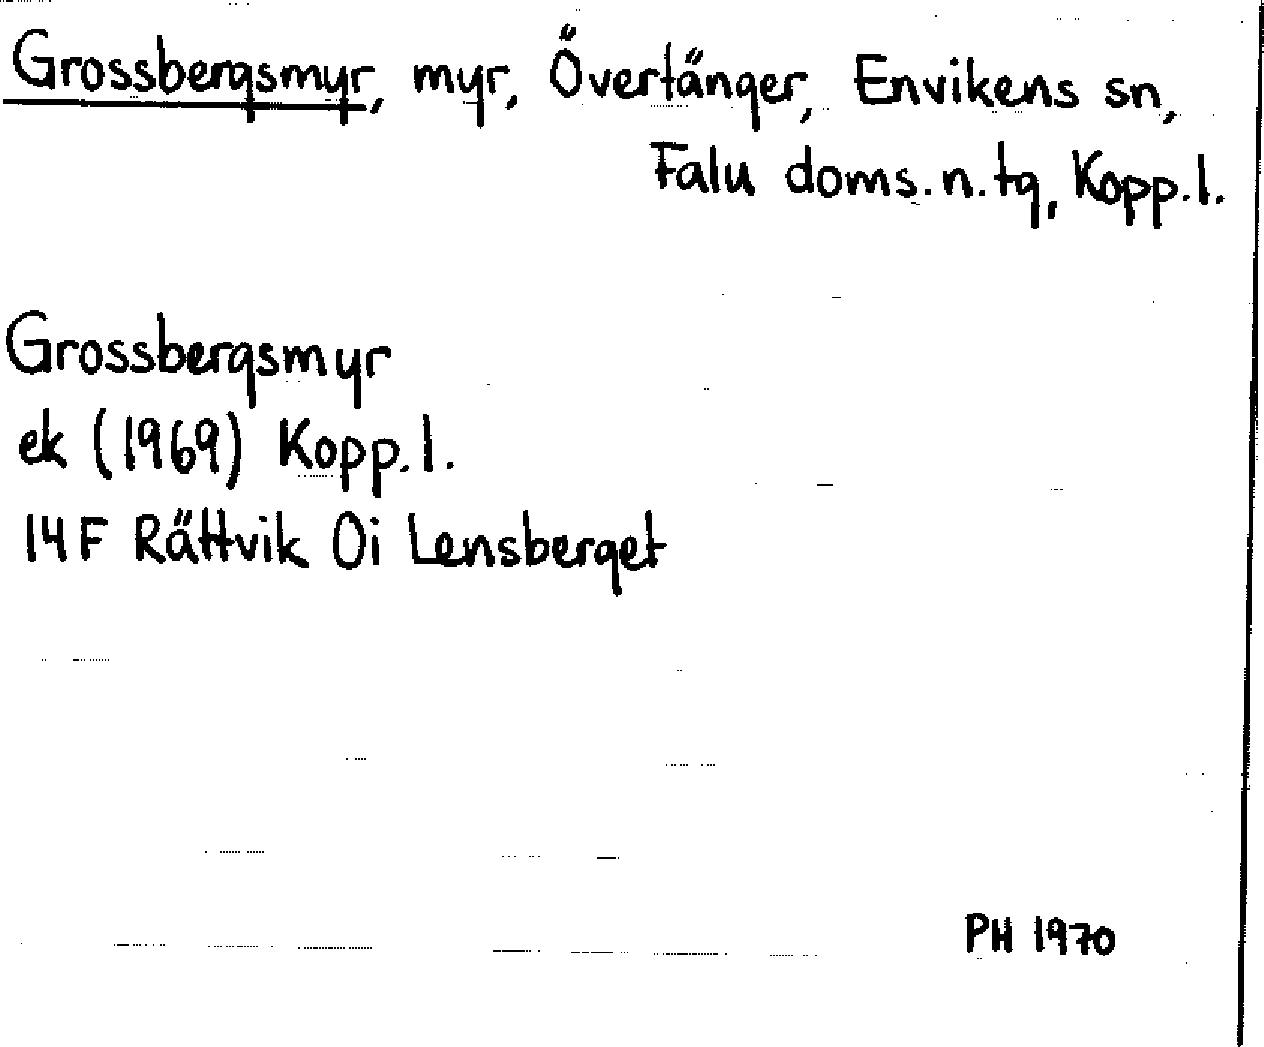 Grossbergsmyr, myr, Övertänger, Envikens sn,
Falu doms.n.tg, Kopp.l.
Grossbergsmyr
ek (1969) Kopp.l.
14F Rättvik 0i Lensberget
PH 1970